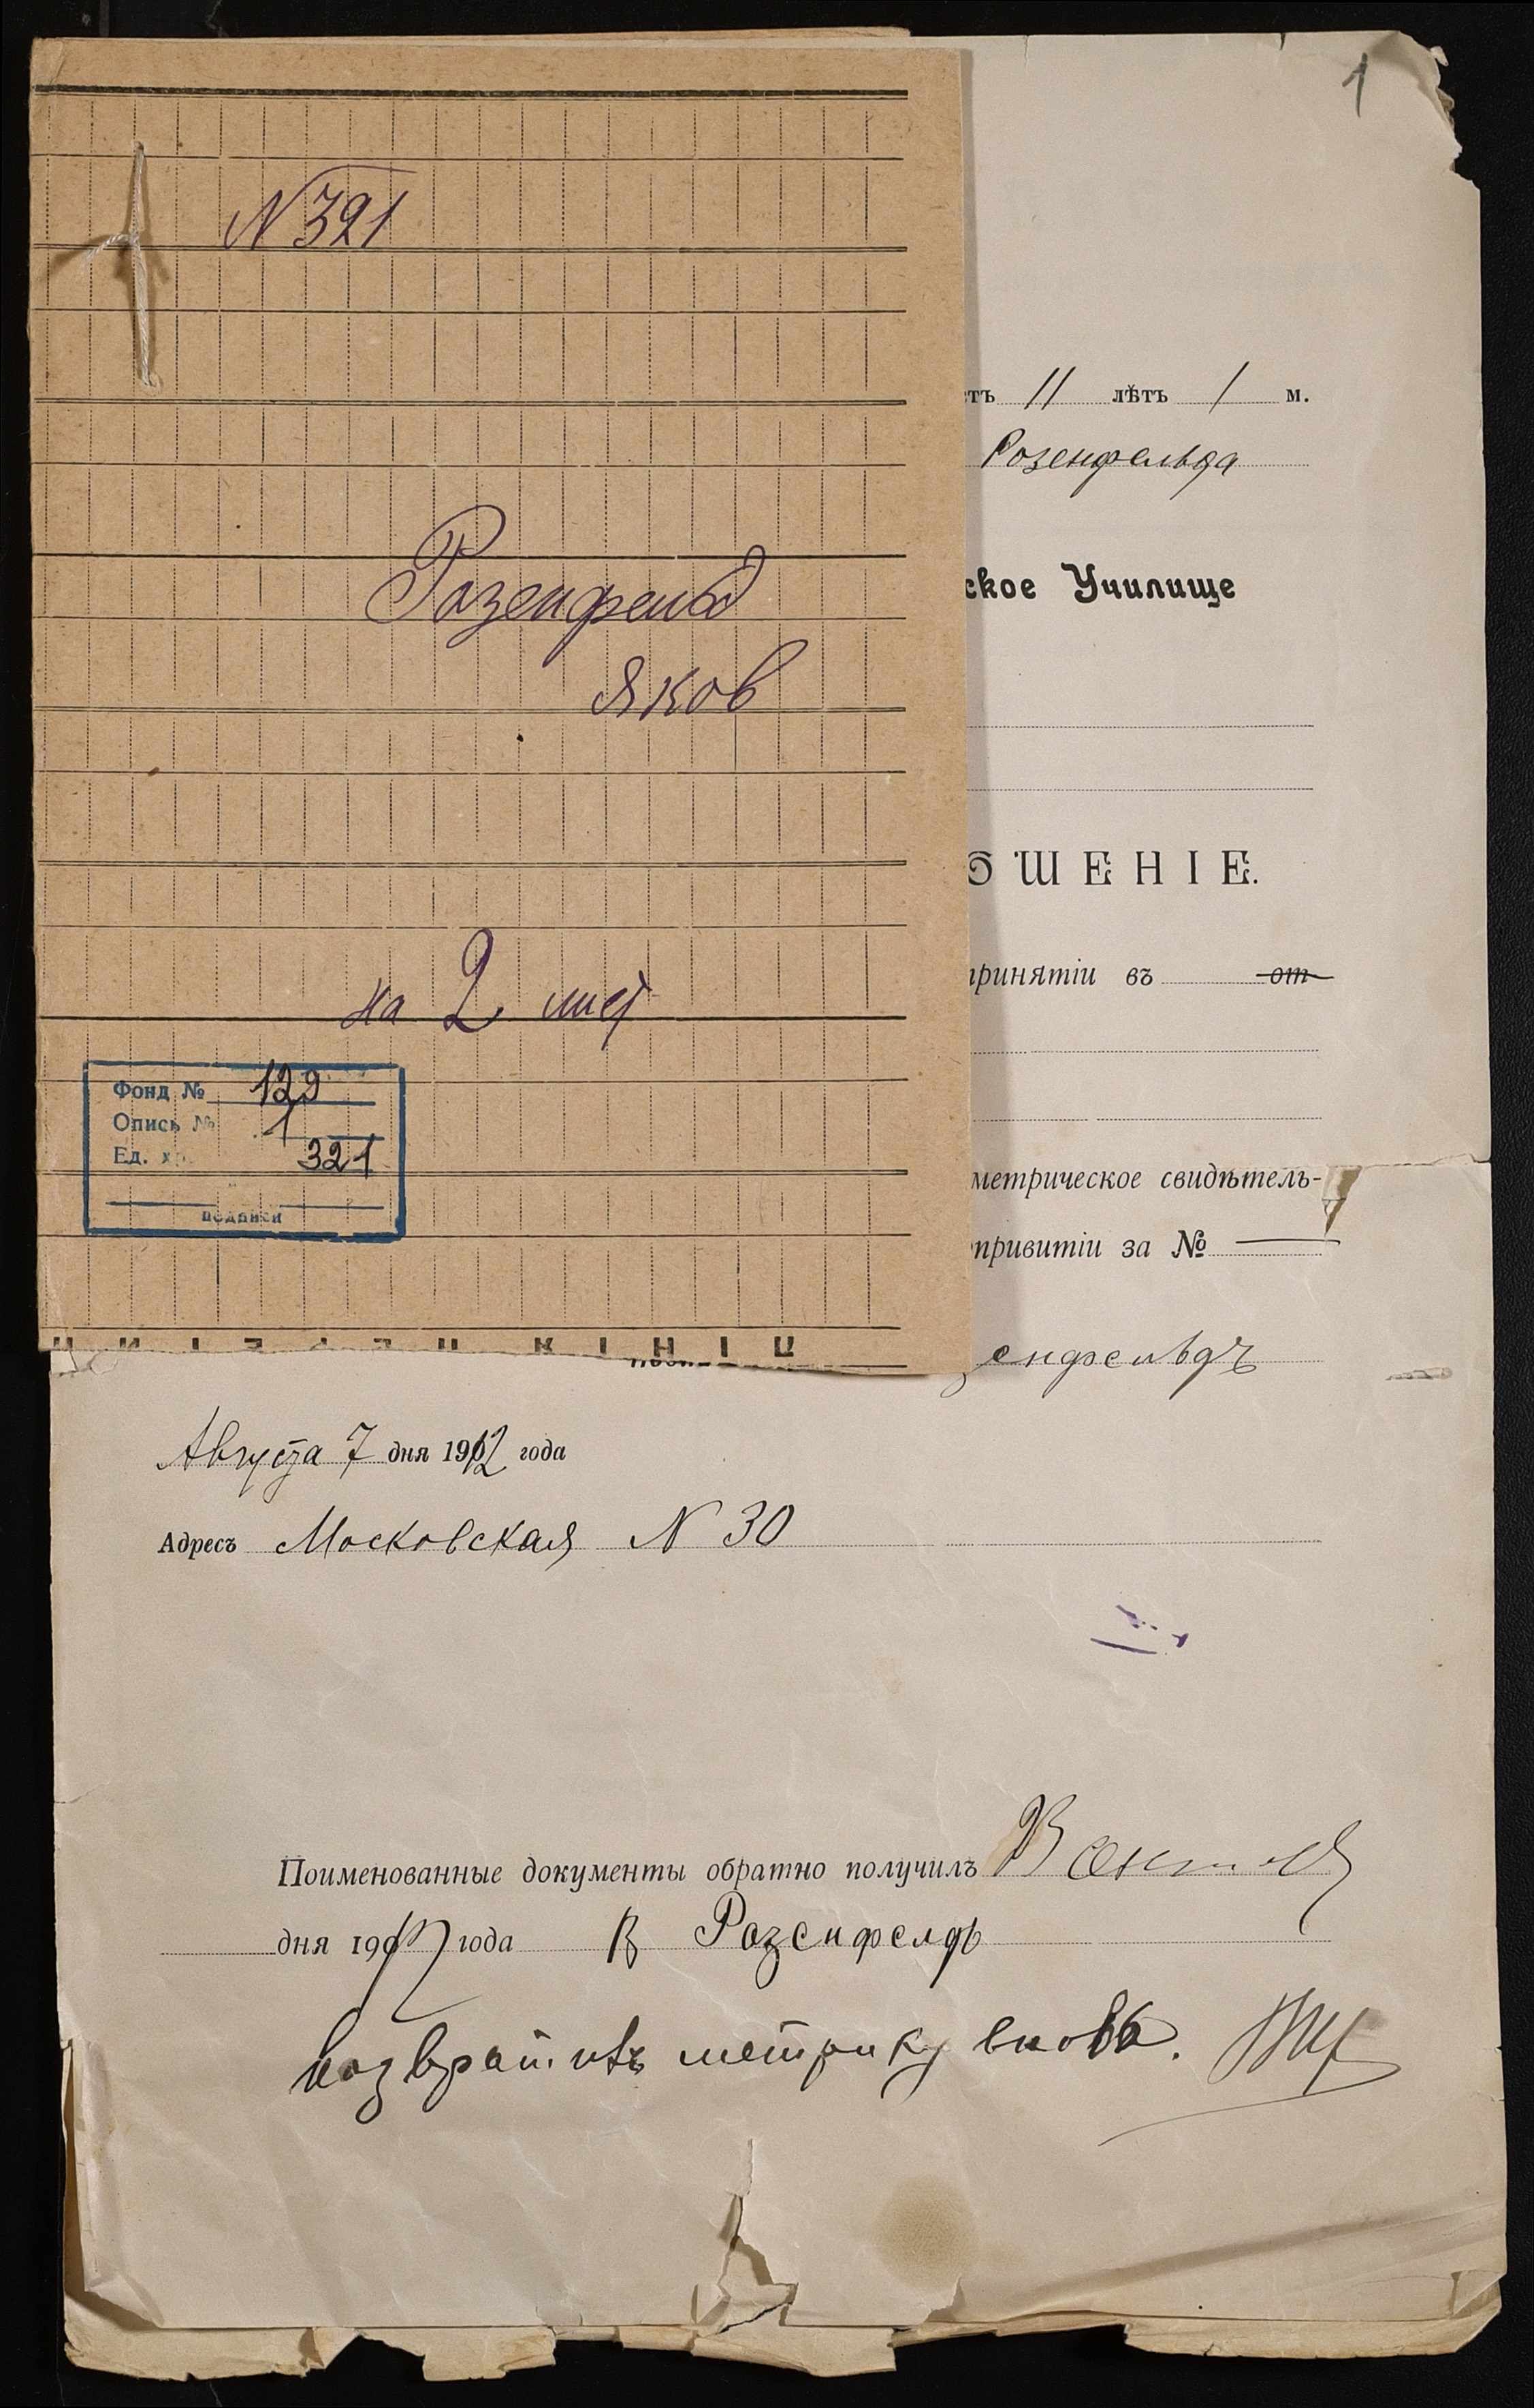 1
N 321
Розенфельд
Яков
на 2 лист
Фонд № 129
Опись № 1
Ед. хр. 321
подписи
11 лѣтъ 1 м.
Розенфельда
ское Училище
ОШЕНІЕ.
принятіи въ от
метрическое свидѣтель-
привитіи за №
енфельдъ
Августа 7 дня 1912 года
Адресъ Московская N 30
Поименованные документы обратно получилъ
дня 191 года В Розенфелдъ
возвратилъ метрику вновь.